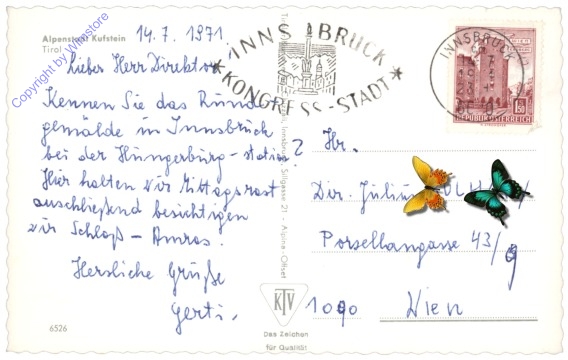 Alpenstadt Kufstein
Tirol
14.7.1971
Lieber Herr Direktor
Kennen Sie das Rund
gemälde in Innsbruck
bei der Hungerburg-station?
Hier halten wir Mittagsrast
anschließend besichtigen
wir Schloß-Amras.
Herzliche Grüße
Gerti.
6526
Copyright by Wienstore
Innsbruck, Sillgasse 21 - Alpina-Offset
KTV
Das Zeichen
für Qualität
INNSBRUCK
KONGRESS-STADT
INNSBRUCK
1.50
REPUBLIK ÖSTERREICH
Hr.
Dir. Julius
Porzellangasse 43/9
1090 Wien